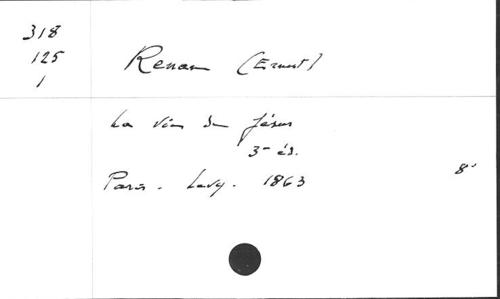 318
125
1
Renan (Ernest)
La vie de Jésus
3e éd.
Paris. Levy. 1863
8°